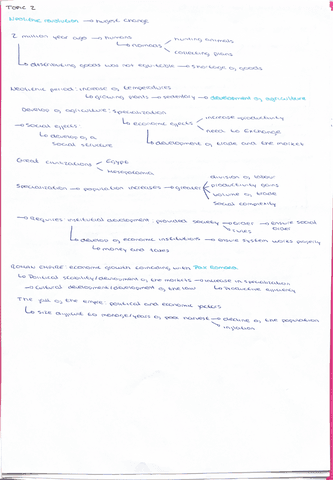 TOPIC 2
Neolithic revolution → biggest change
2 million year ago → humans → hunting animals
↳ nomads
collecting plans
↳ distributing goods was not equitable → shortage of goods
Neolithic period: increase of temperatures
↳ growing plants → sedentary → development of agriculture
Develop of agriculture: specialization
→ Social effects: ↳ economic effects → increase productivity
↳ develop of a social structure
need to exchange
↳ development of trade and the market
Great civilizations → Egypt
Mesopotamia
Specialization → population increases → greater
division of labour
productivity gains
volume of trade
social complexity
→ Requires institutional development: provided security → ensure social order
↳ develop of economic institutions → ensure system works properly
↳ money and taxes
ROMAN EMPIRE: economic growth coinciding with Pax Romana
↳ Political stability/development of the markets → increase in specialization
→ cultural development/development of the law ↳ productive
The fall of the empire: political and economic factors
↳ size difficult to manage/years of poor harvest → decline of the population
inflation